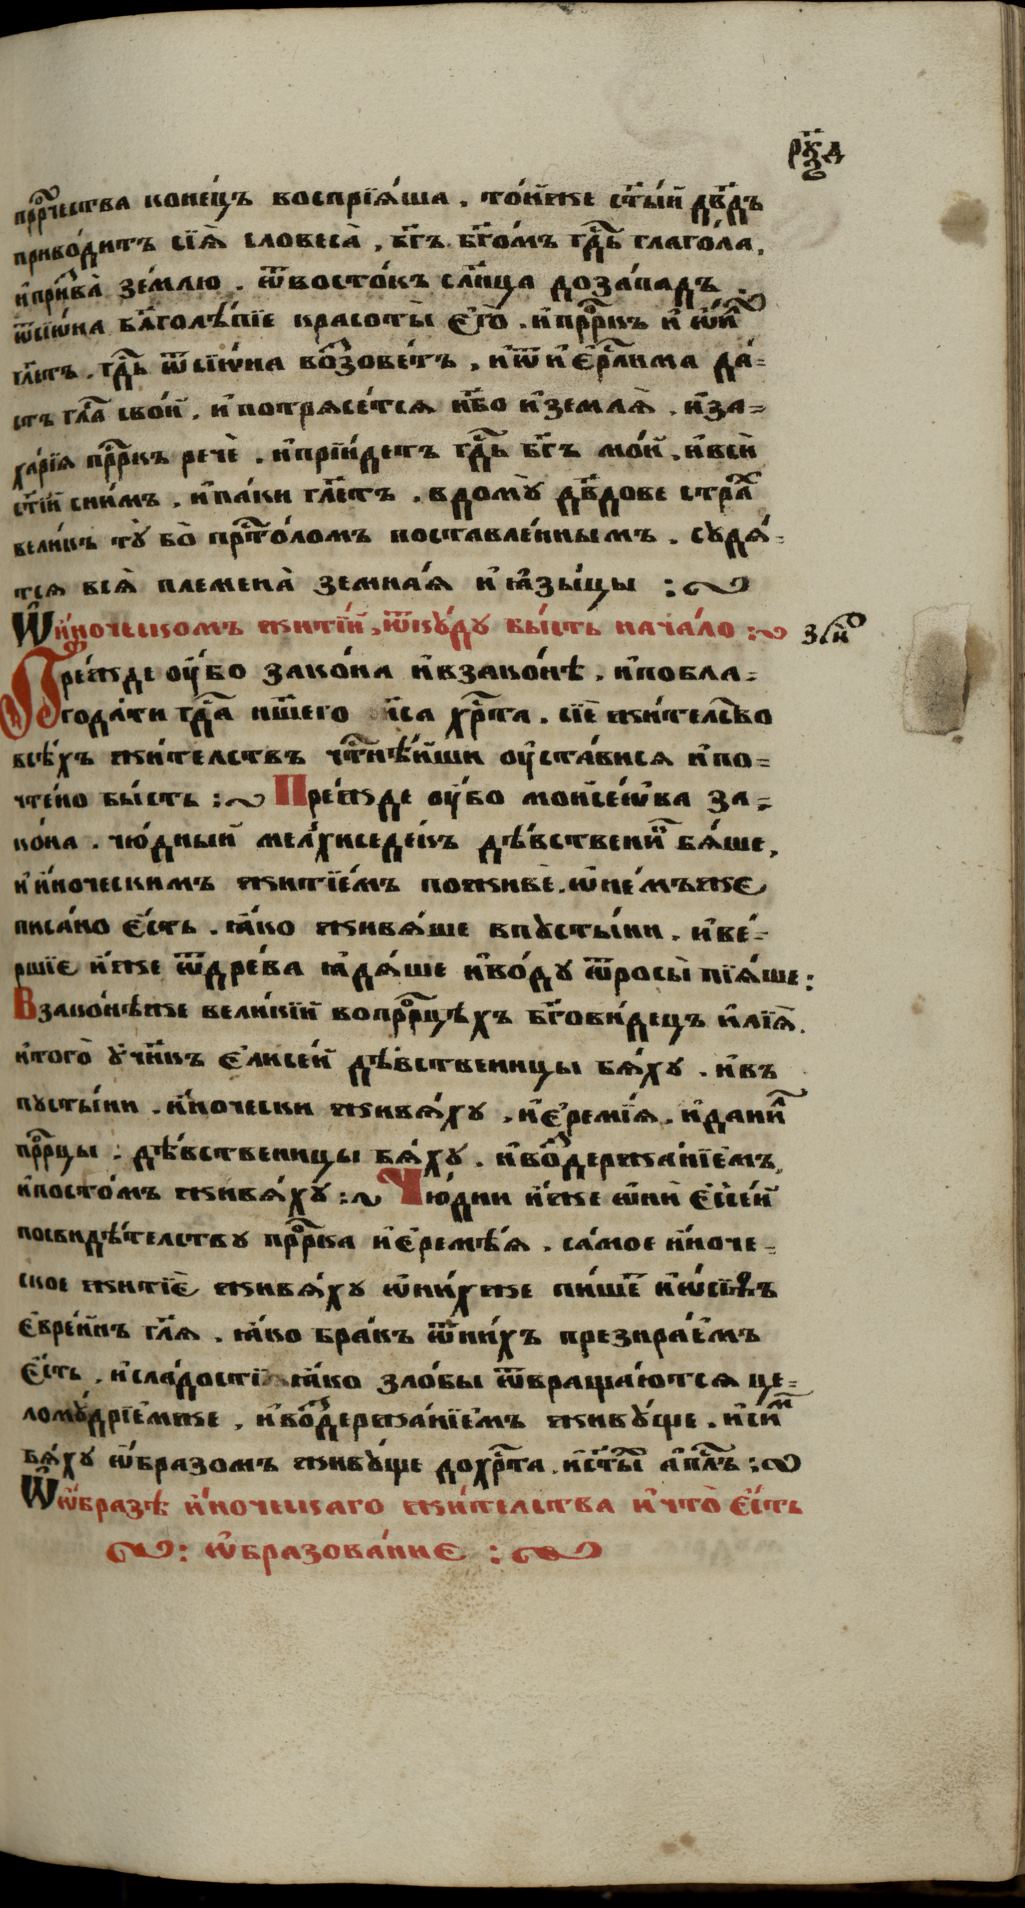 рч҃д
прⷪ҇рчества коне́цъ воспрїѧ́ша . то́йже ст҃ы́й дв҃дъ
приво́дитъ сїѧ̀ словеса̀ , бг҃ъ бг҃о́мъ гдⷭ҇ь глаго́ла ,
и҆призва̀ зе́млю . ѿвосто́къ сл҃нца доза́падъ .
ѿсїѡ́на бл҃голѣ́пїе красоты̀ є҆го̀ . и҆прⷪ҇ркъ и҆ ѡ҆и́л
гл҃етъ . гдⷭ҇ь ѿсїѡ́на воззове́тъ , и҆ѿ и҆єрⷭ҇лима да́-
стъ гла́с сво́й . и҆потрѧсе́тсѧ нб҃о и҆землѧ̀ . и҆за-
ха́рїѧ прⷪ҇ркъ речѐ . и҆прїи́детъ гдⷭ҇ь бг҃ъ мо́й , и҆всѝ
ст҃і́и сни́мъ . и҆па́ки гл҃етъ . вдомꙋ̀ дв҃дове стра́х
вели́къ тꙋ̀ бо̀ прⷭ҇то́ломъ поставле́ннымъ . судѧ́-
тсѧ всѧ̀ племена̀ земна́ѧ и҆ ꙗ҆зы́цы :
Ѡ҆ и҆́ноческомъ житїѝ , ѿкꙋ́ду бы́сть нача́ло :
Пре́жде оу҆́бо зако́на и҆взако́нѣ , и҆побла-
года́ти гдⷭ҇а на́шего і҆са хрⷭ҇та̀ . сїѐ жи́тельство
всѣ́хъ жи́телствъ чⷭ҇тнѣ́йши оу҆ста́висѧ и҆по-
чте́но бы́сть : Пре́жде оу҆́бо мойсе́ѡва за-
ко́на . чю́дный мелхиседе́къ дѣ́вственик бѧ́ше ,
и҆ и҆́ноческимъ житїе́мъ поживѐ . ѡ҆не́мъже
писа́но є҆́сть . ꙗ҆́ко живѧ́ше впꙋсты́ни . и҆ве́-
ршїе и҆́же ѿдре́ва ꙗ҆дѧ́ше и҆во́ду ѿросы̀ пїѧ́ше :
Взако́нѣже вели́кїй вопрⷪ҇рцѣхъ бг҃ови́децъ и҆лїѧ̀ .
и҆того̀ ᲂу҆чн҃къ є҆лисе́й дѣ́вственицы бѧ́ху . и҆въ
пусты́ни . и҆́ночески живѧ́ху , и҆єремі́ѧ . и҆дании́л
прⷪ҇рцы : дѣ́вственицы бѧ́хꙋ . и҆воздержа́нїемъ ,
и҆посто́мъ живѧ́хꙋ : Чю́дни и҆́же ѡ҆нѝ є҆ссе́и
посвидѣ́телству прⷪ҇рка и҆єремѣ́ѧ . са́мое и҆́ноче-
ское житїѐ живѧ́ху ѡ҆ни́хже пи́шет и҆ѡ́сїѳъ
є҆вре́инъ гл҃ѧ . ꙗ҆́ко бра́къ ѿни́хъ презира́емъ
є҆́сть , и҆сла́дости ꙗ҆́ко зло́бы ѿвраща́ютсѧ це-
ломꙋ́дрїемже , и҆воздержа́нїемъ живꙋ́ще . и҆си́м
бѧ́ху ѡ҆́бразомъ живꙋ́ще дохрⷭ҇та̀ . и҆ст҃ы́х а҆пⷭ҇лъ :
Ѡ҆ ѡ҆́бразѣ и҆́ноческаго жи́телства и҆что̀ є҆́сть
: ѡ҆бразова́ние :